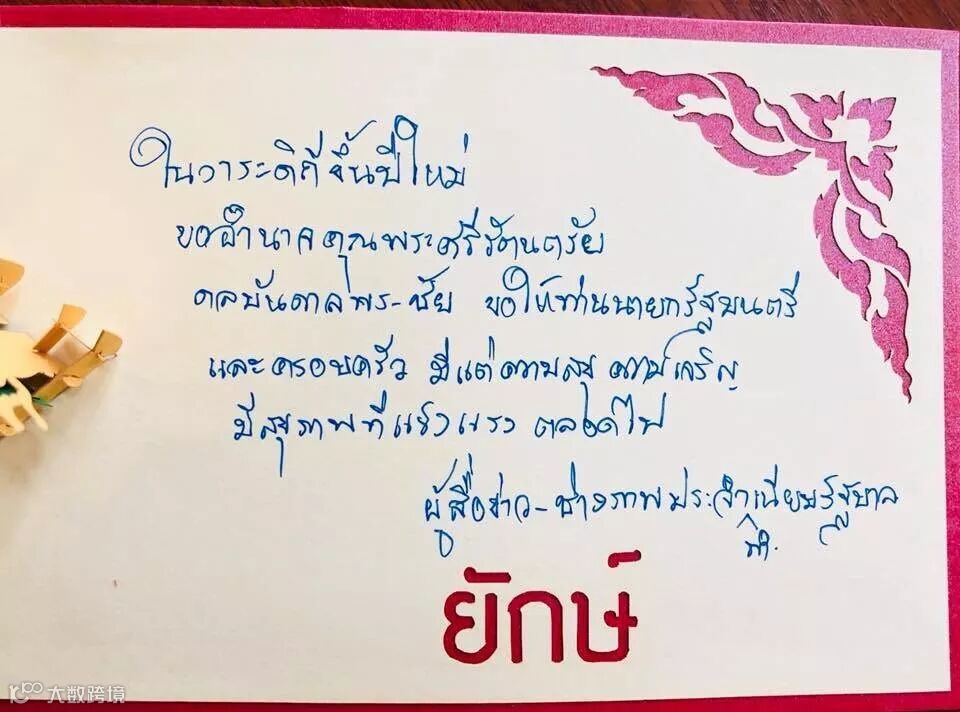 ในวาระดิถีขึ้นปีใหม่
ขออำนาจคุณพระศรีรัตนตรัย
ดลบันดาลพร-ชัย ขอให้ท่านนายกรัฐมนตรี
และครอบครัว มีแต่ความสุข ความเจริญ
มีสุขภาพที่แข็งแรง ตลอดไป
ผู้สื่อข่าว-ช่างภาพประจำเนียบรัฐบาล
ทำ
ยักษ์
大数跨境